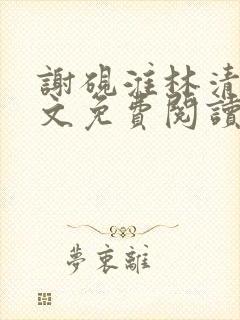 謝硯漼林清
文免費閱讀
夢裏離